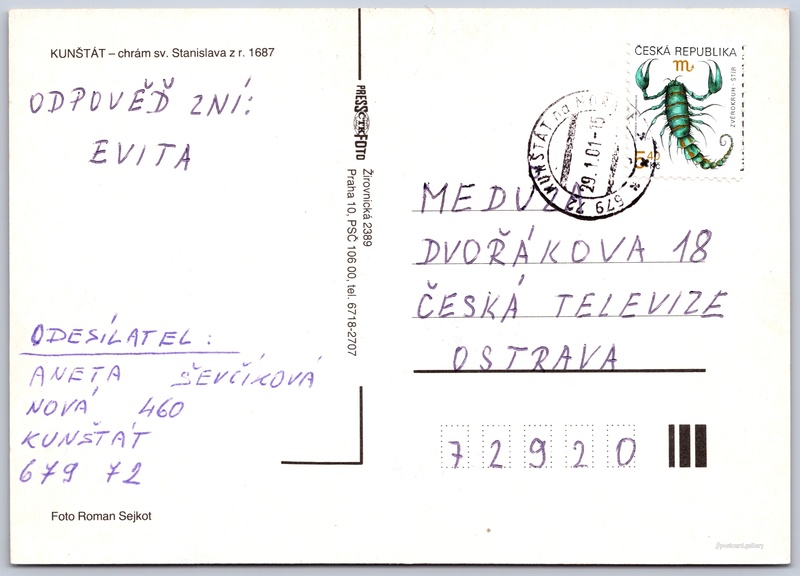 KUNŠTÁT – chrám sv. Stanislava z r. 1687
ODPOVĚĎ ZNÍ:
EVITA
ODESÍLATEL:
ANETA ŠEVČÍKOVÁ
NOVÁ 460
KUNŠTÁT
679 72
Foto Roman Sejkot
PRESSFOTO
ČTK
Žirovnická 2389
Praha 10, PSČ 106 00, tel. 6718-2707
ČESKÁ REPUBLIKA
ZVĚROKRUH - ŠTÍR
5,40
KUNŠTÁT na MOR
29.1.01-15
679 72
MEDUZA
DVOŘÁKOVA 18
ČESKÁ TELEVIZE
OSTRAVA
72920
//postcard.gallery